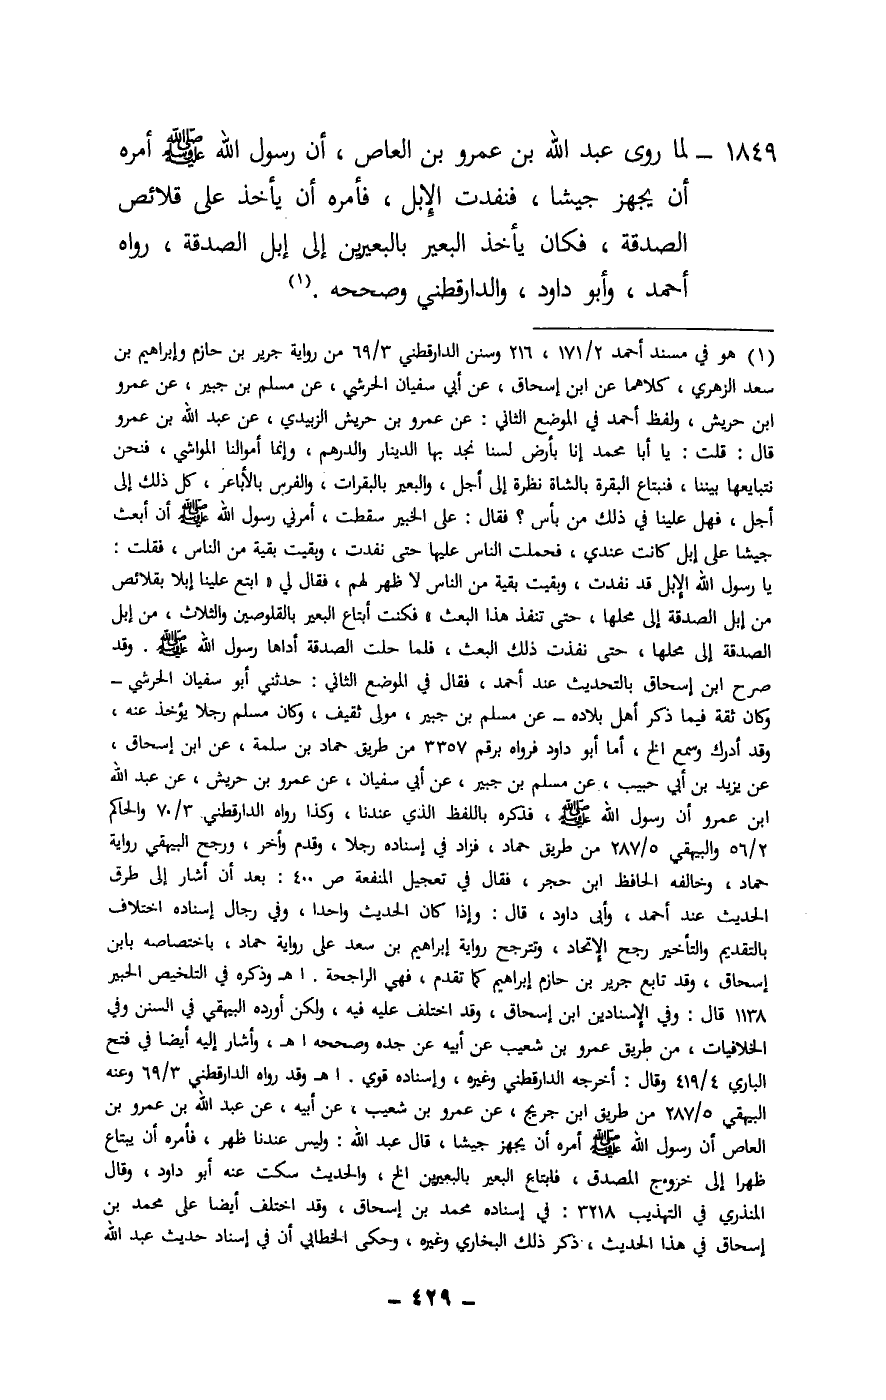 ١٨٤٩ ـ لما روى عبد الله بن عمرو بن العاص ، أن رسول الله ﷺ أمره
أن يجهز جيشا ، فنفدت الإبل ، فأمره أن يأخذ على قلائص
الصدقة ، فكان يأخذ البعير بالبعيرين إلى إبل الصدقة ، رواه
أحمد ، وأبو داود ، والدارقطني وصححه .(١)
(١) هو في مسند أحمد ١٧١/٢ ، ٢١٦ وسنن الدارقطني ٦٩/٣ من رواية جرير بن حازم وإبراهيم بن
سعد الزهري ، كلاهما عن ابن إسحاق ، عن أبي سفيان الحرشي ، عن مسلم بن جبير ، عن عمرو
ابن حريش ، ولفظ أحمد في الموضع الثاني : عن عمرو بن حريش الزبيدي ، عن عبد الله بن عمرو
قال : قلت : يا أبا محمد إنا بأرض لسنا نجد بها الدينار والدرهم ، وإنما أموالنا المواشي ، فنحن
نتبايعها بيننا ، فنبتاع البقرة بالشاة نظرة إلى أجل ، والبعير بالبقرات ، والفرس بالأباعر ، كل ذلك إلى
أجل ، فهل علينا في ذلك من بأس ؟ فقال : على الخبير سقطت ، أمرني رسول الله ﷺ أن أبعث
جيشا على إبل كانت عندي ، فحملت الناس عليها حتى نفدت ، وبقيت بقية من الناس ، فقلت :
يا رسول الله الإبل قد نفدت ، وبقيت بقية من الناس لا ظهر لهم ، فقال لي « ابتع علينا إبلا بقلائص
من إبل الصدقة إلى محلها ، حتى تنفذ هذا البعث » فكنت أبتاع البعير بالقلوصين والثلاث ، من إبل
الصدقة إلى محلها ، حتى نفذت ذلك البعث ، فلما حلت الصدقة أداها رسول الله ﷺ . وقد
صرح ابن إسحاق بالتحديث عند أحمد ، فقال في الموضع الثاني : حدثني أبو سفيان الحرشي ـ
وكان ثقة فيما ذكر أهل بلاده ـ عن مسلم بن جبير ، مولى ثقيف ، وكان مسلم رجلا يؤخذ عنه ،
وقد أدرك وسمع الخ ، أما أبو داود فرواه برقم ٣٣٥٧ من طريق حماد بن سلمة ، عن ابن إسحاق ،
عن يزيد بن أبي حبيب ، عن مسلم بن جبير ، عن أبي سفيان ، عن عمرو بن حريش ، عن عبد الله
ابن عمرو أن رسول الله ﷺ ، فذكره باللفظ الذي عندنا ، وكذا رواه الدارقطني ٧٠/٣ والحاكم
٥٦/٢ والبيهقي ٢٨٧/٥ من طريق حماد ، فزاد في إسناده رجلا ، وقدم وأخر ، ورجح البيهقي رواية
حماد ، وخالفه الحافظ ابن حجر ، فقال في تعجيل المنفعة ص ٤٠٠ : بعد أن أشار إلى طرق
الحديث عند أحمد ، وأبى داود ، قال : وإذا كان الحديث واحدا ، وفي رجال إسناده اختلاف
بالتقديم والتأخير رجح الإتحاد ، وتترجح رواية إبراهيم بن سعد على رواية حماد ، باختصاصه بابن
إسحاق ، وقد تابع جرير بن حازم إبراهيم كما تقدم ، فهي الراجحة . ا هـ وذكره في التلخيص الحبير
١١٣٨ قال : وفي الإسنادين ابن إسحاق ، وقد اختلف عليه فيه ، ولكن أورده البيهقي في السنن وفي
الخلافيات ، من طريق عمرو بن شعيب عن أبيه عن جده وصححه ا هـ ، وأشار إليه أيضا في فتح
الباري ٤١٩/٤ وقال : أخرجه الدارقطني وغيره ، وإسناده قوي . ا هـ وقد رواه الدارقطني ٦٩/٣ وعنه
البيهقي ٢٨٧/٥ من طريق ابن جريج ، عن عمرو بن شعيب ، عن أبيه ، عن عبد الله بن عمرو بن
العاص أن رسول الله ﷺ أمره أن يجهز جيشا ، قال عبد الله : وليس عندنا ظهر ، فأمره أن يبتاع
ظهرا إلى خروج المصدق ، فابتاع البعير بالبعيرين الخ ، والحديث سكت عنه أبو داود ، وقال
المنذري في التهذيب ٣٢١٨ : في إسناده محمد بن إسحاق ، وقد اختلف أيضا على محمد بن
إسحاق في هذا الحديث ، ذكر ذلك البخاري وغيره ، وحكى الخطابي أن في إسناد حديث عبد الله
ـ ٤٢٩ ـ